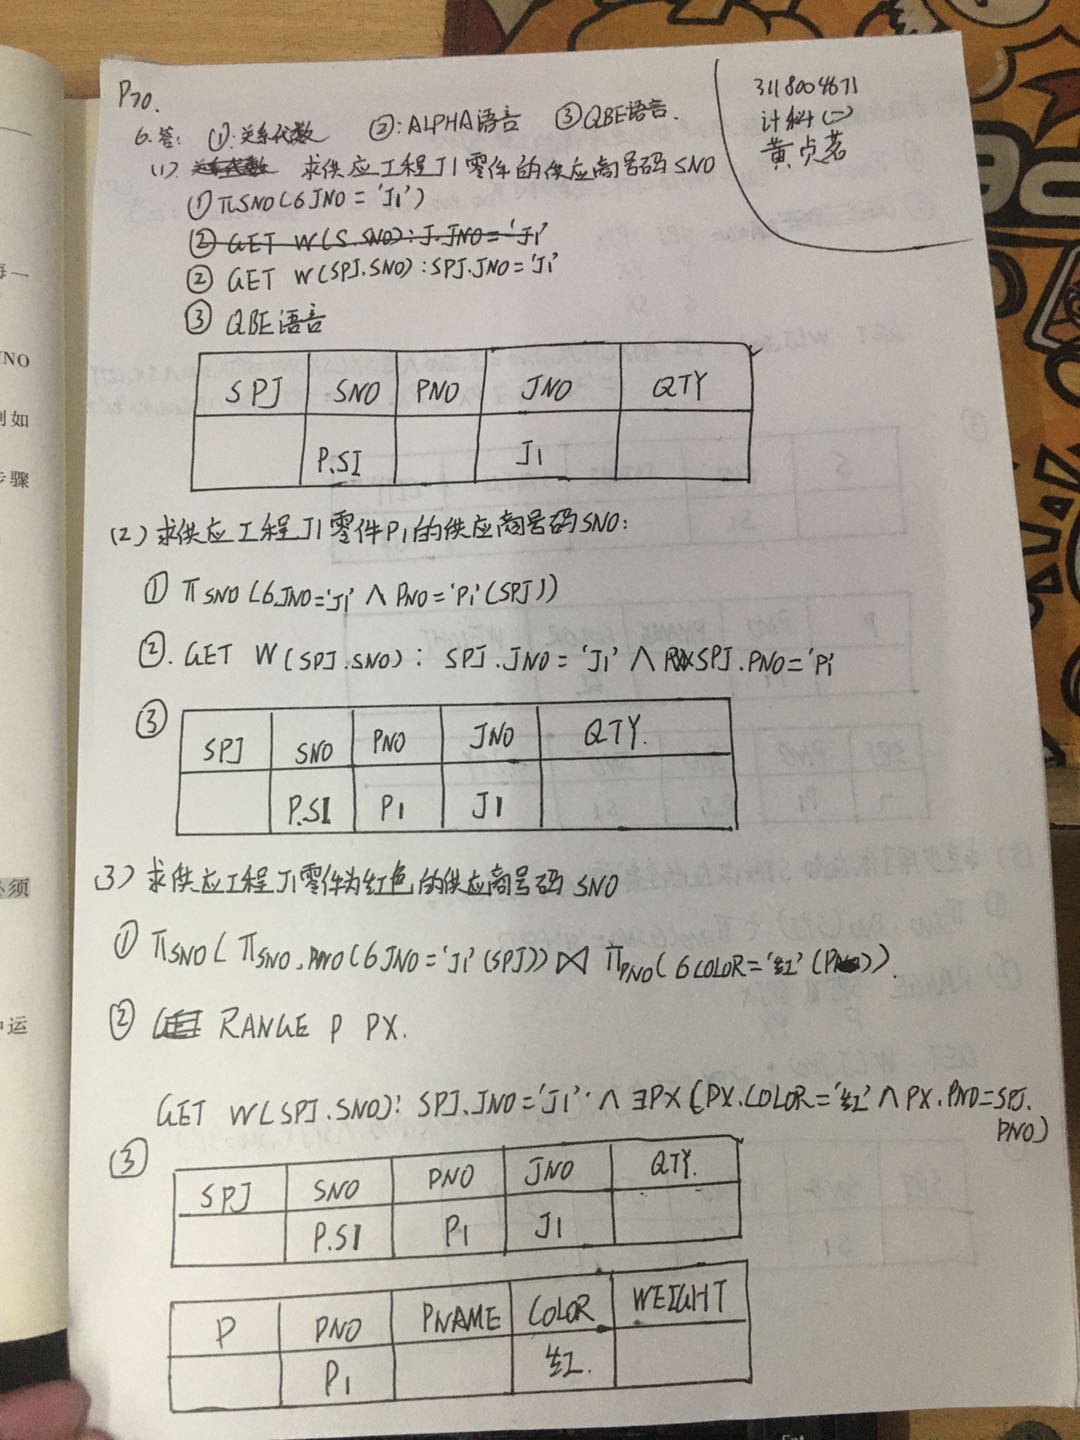 P70.
3118004671
计科(二)
黄贞茗
6.答: ①:关系代数 ②:ALPHA语言 ③QBE语言.
(1) 求供应工程J1零件的供应商号码SNO
① πSNO(6JNO='J1')
② GET W(S.SNO):J.JNO='J1'
② GET W(SPJ.SNO):SPJ.JNO='J1'
③ QBE语言
SPJ SNO PNO JNO QTY
P.S1 J1
(2)求供应工程J1零件P1的供应商号码SNO:
① πSNO(6JNO='J1' ∧ PNO='P1'(SPJ))
②. GET W(SPJ.SNO): SPJ.JNO='J1' ∧ SPJ.PNO='P1'
③
SPJ SNO PNO JNO QTY.
P.S1 P1 J1
(3)求供应工程J1零件为红色的供应商号码SNO
① πSNO(πSNO,PNO(6JNO='J1'(SPJ))⋈ πPNO(6COLOR='红'(P))).
② RANGE P PX.
GET W(SPJ.SNO): SPJ.JNO='J1' ∧ ∃PX(PX.COLOR='红' ∧ PX.PNO=SPJ.
PNO)
(3)
SPJ SNO PNO JNO QTY.
P.S1 P1 J1
P PNO PNAME COLOR WEIGHT
P1 红.
NO
列如
步骤
必须
中运